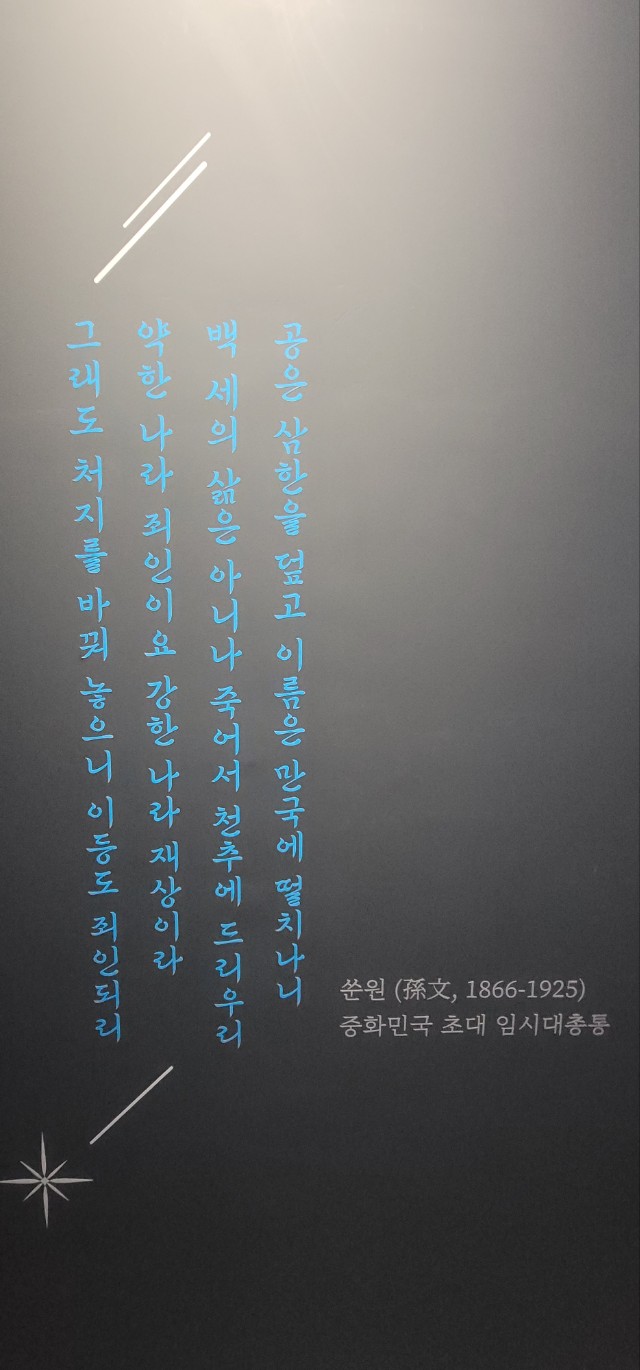 공은 삼한을 덮고 이름은 만국에 떨치나니
백 세의 삶은 아니나 죽어서 천추에 드리우리
약한 나라 죄인이요 강한 나라 재상이라
그래도 처지를 바꿔 놓으니 이등도 죄인되리
쑨원 (孫文, 1866-1925)
중화민국 초대 임시대총통